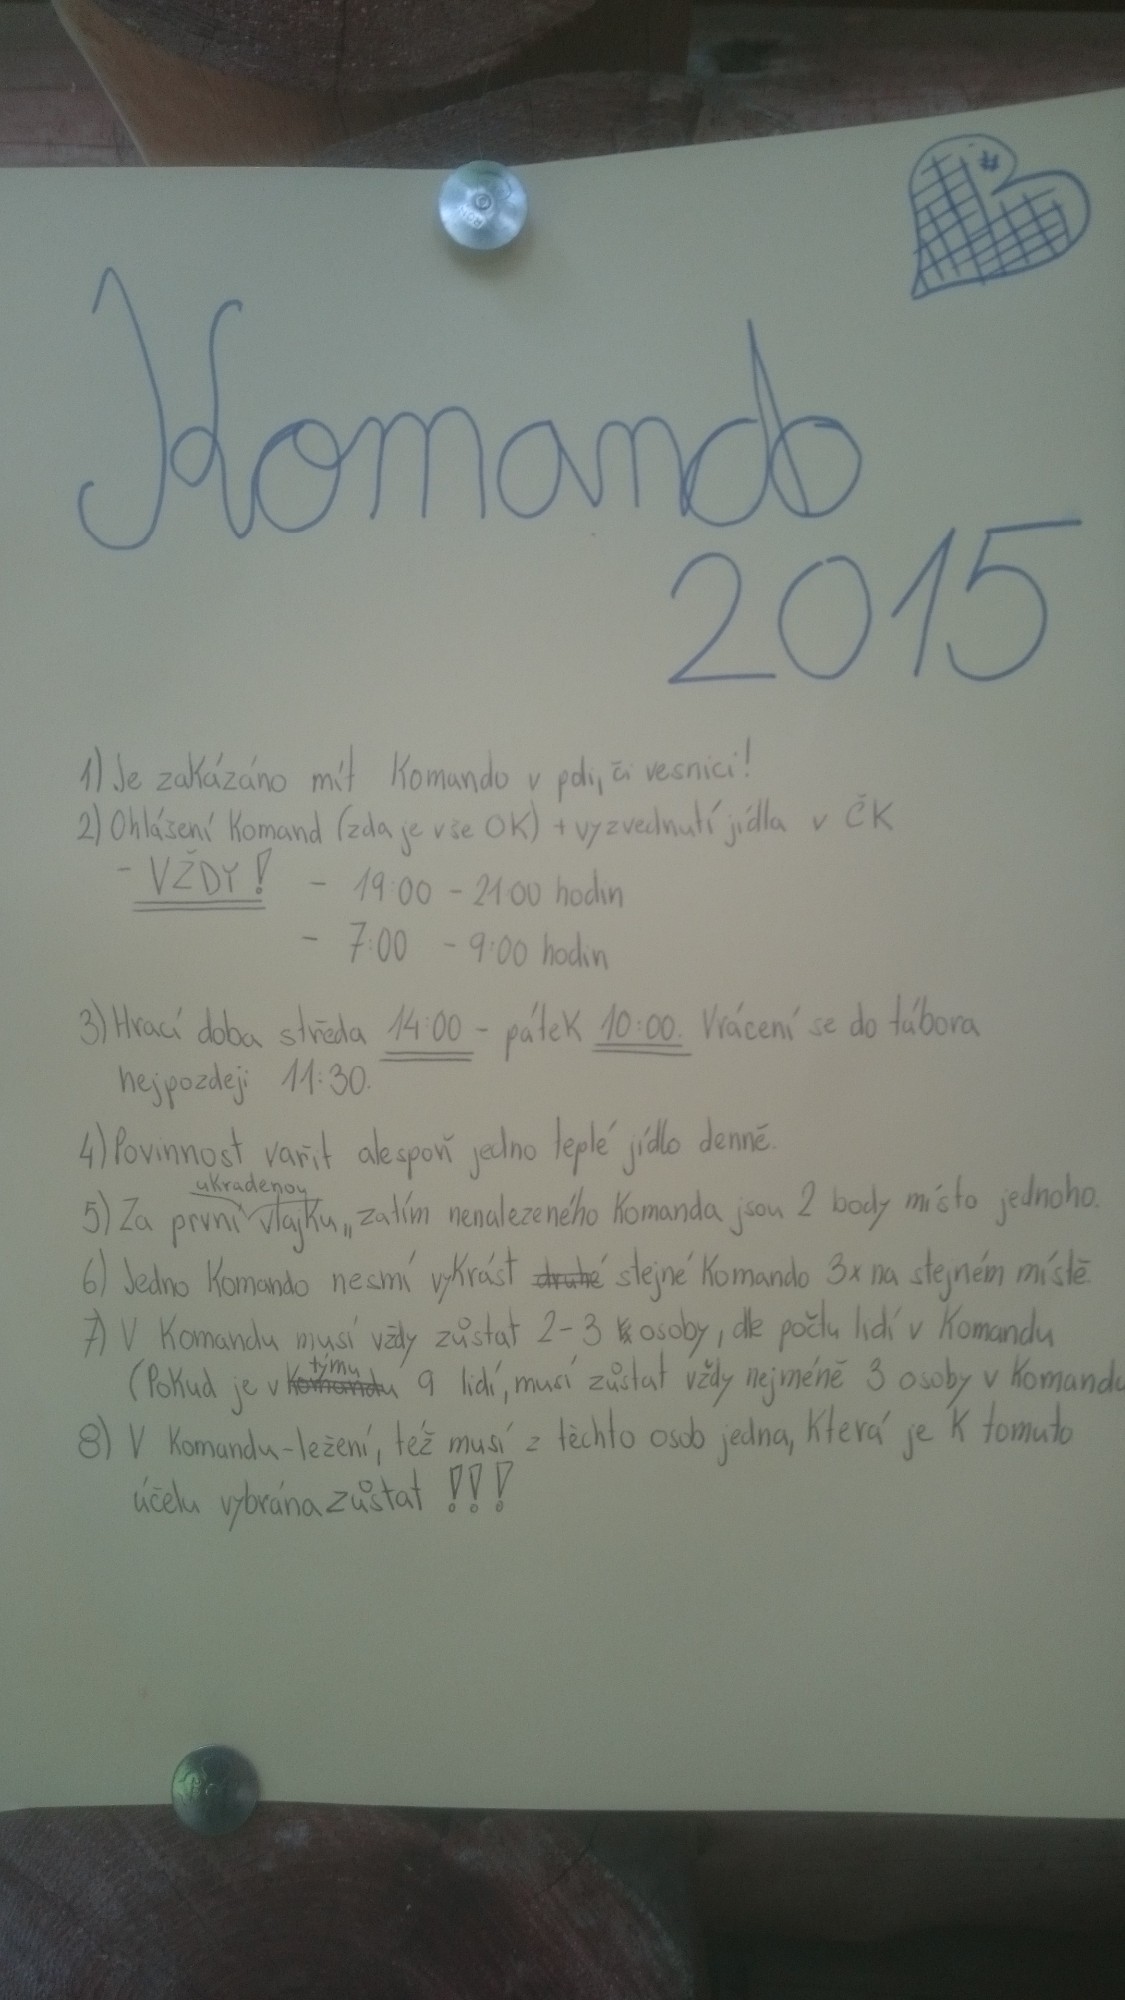 Komando
2015
1) Je zakázáno mít Komando v poli, či vesnici!
2) Ohlášení Komand (zda je vše OK) + vyzvednutí jídla v ČK
- VŽDY! - 19:00 - 21:00 hodin
- 7:00 - 9:00 hodin
3) Hrací doba středa 14:00 - pátek 10:00. Vrácení se do tábora
nejpozdeji 11:30.
4) Povinnost vařit alespoň jedno teplé jídlo denně.
ukradenou
5) Za první vlajku,, zatím nenalezeného Komanda jsou 2 body místo jednoho.
6) Jedno Komando nesmí vykrást druhé stejné Komando 3x na stejném místě
7) V Komandu musí vždy zůstat 2-3 osoby, dle počtu lidí v Komandu
týmu
(Pokud je v Komandu 9 lidí, musí zůstat vždy nejméně 3 osoby v Komandu
8) V Komandu-ležení, též musí z těchto osob jedna, která je k tomuto
účelu vybrána zůstat !!!